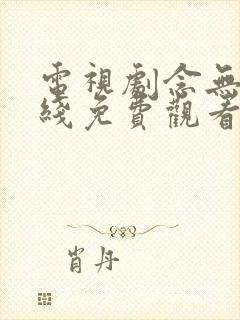 電視劇念無
綫免費觀看
肖丹